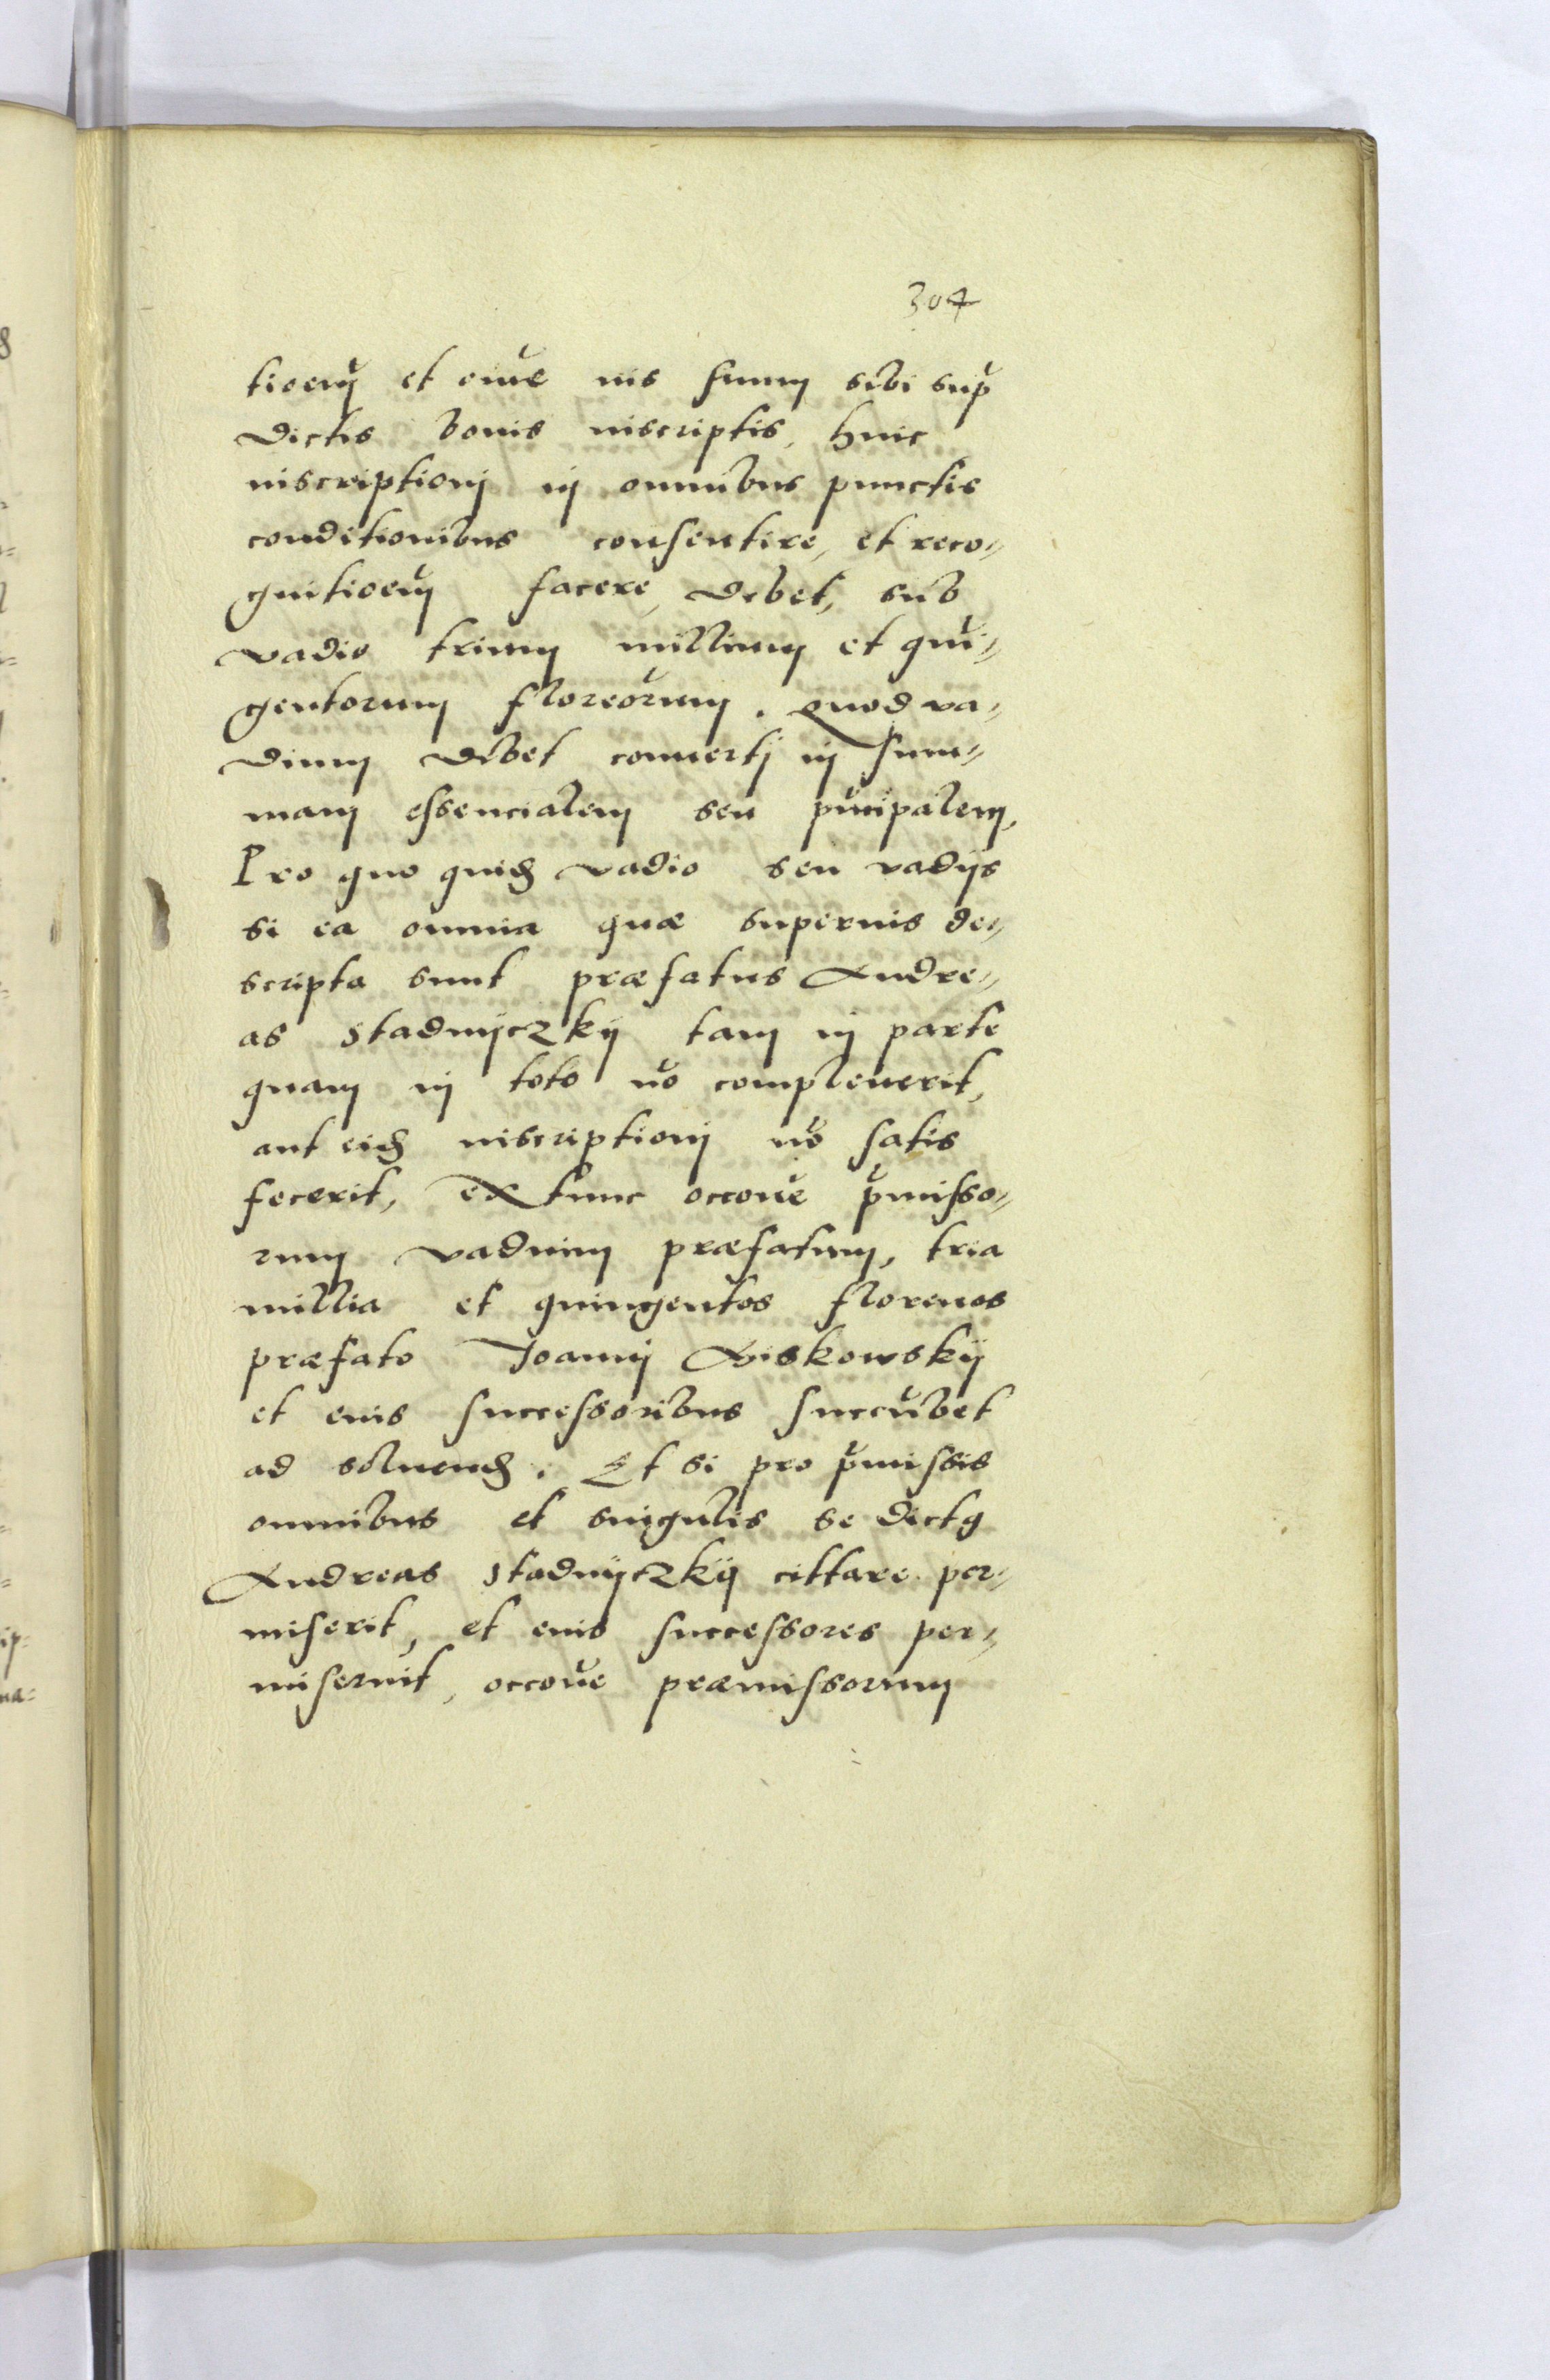 304
tioem̃ et om̃e ius suum sibi sup̃
dictis bonis inscriptis, huic
inscriptionj in omnibus punctis
conditionibus consentire, et reco⸗
gnitioem̃ facere, debet, sub
vadio trium millium et qui̅⸗
gentorum floreoru̅m. Quod va⸗
dium debet conuertj in sum⸗
mam essencialem seu pu̅cipalem,
Pro quo quidẽ vadio seu vadijs
si ea omnia quæ superius de⸗
scripta sunt præfatus Andre⸗
as Stadnyczkÿ tam in parte
quam in toto no̅ compleuerit,
aut eidẽ inscriptionj no̅ satis
fecerit, ex tunc occoe̅ p̅misso⸗
rum vadium præfatum, tria
millia et quingentos florenos
præfato Joannj Liskowskÿ
et eius successoribus succu̅bet
ad soluendẽ. Et si pro p̅missis
omnibus et singulis se dictꝯ
Andreas Stadnyczkÿ cittare per⸗
miserit, et eius successores per⸗
miseri̅t, occoe̅ præmissorum